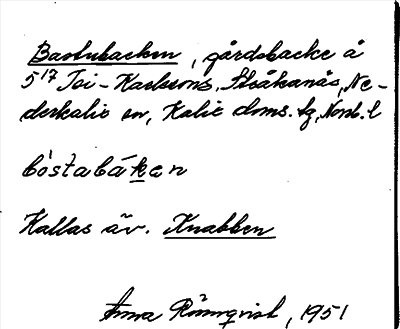 Bastubacken, gårdsbacke å
5¹⁷ Isi-Karlsons, Stråkanäs, Ne-
derkalix sn, Kalix doms. tg, Norrb. l
bòstabák̠en
Kallas äv. Knabben
Anna Rönnqvist, 1951